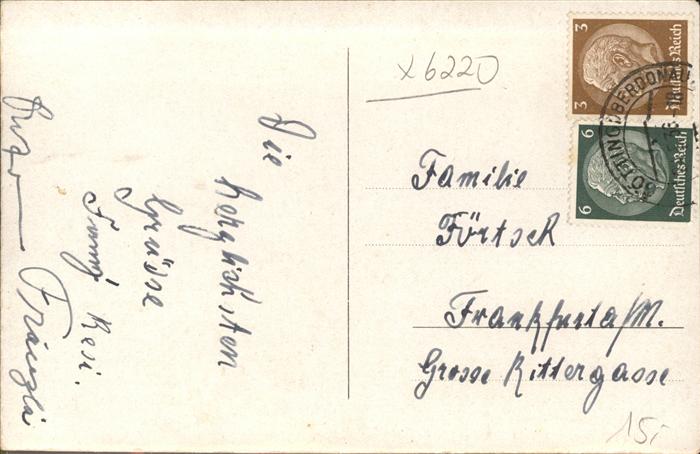 Die
herzlichsten
Grüsse
Fanny Resi.
Franzli
x 6220
3 3
Deutsches Reich
6 6
Deutsches Reich
OBERDONAU
Familie
Förtsch
Frankfurt a/M.
Grosse Rittergasse
15,-